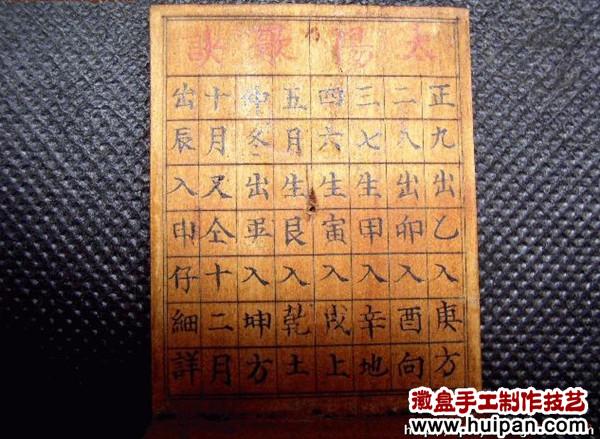 太陽歌訣
正九出乙入庚方
二八出卯入酉向
三七生甲入辛地
四六生寅入戌上
五月生艮入乾土
仲冬出入坤方
十月又仝十二月
出辰入申仔細詳
徽盒手工制作技艺
www.huipan.com